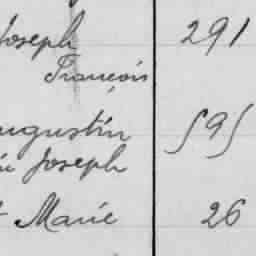 Joseph 291
François
Augustin 595
Joseph
Marie 26